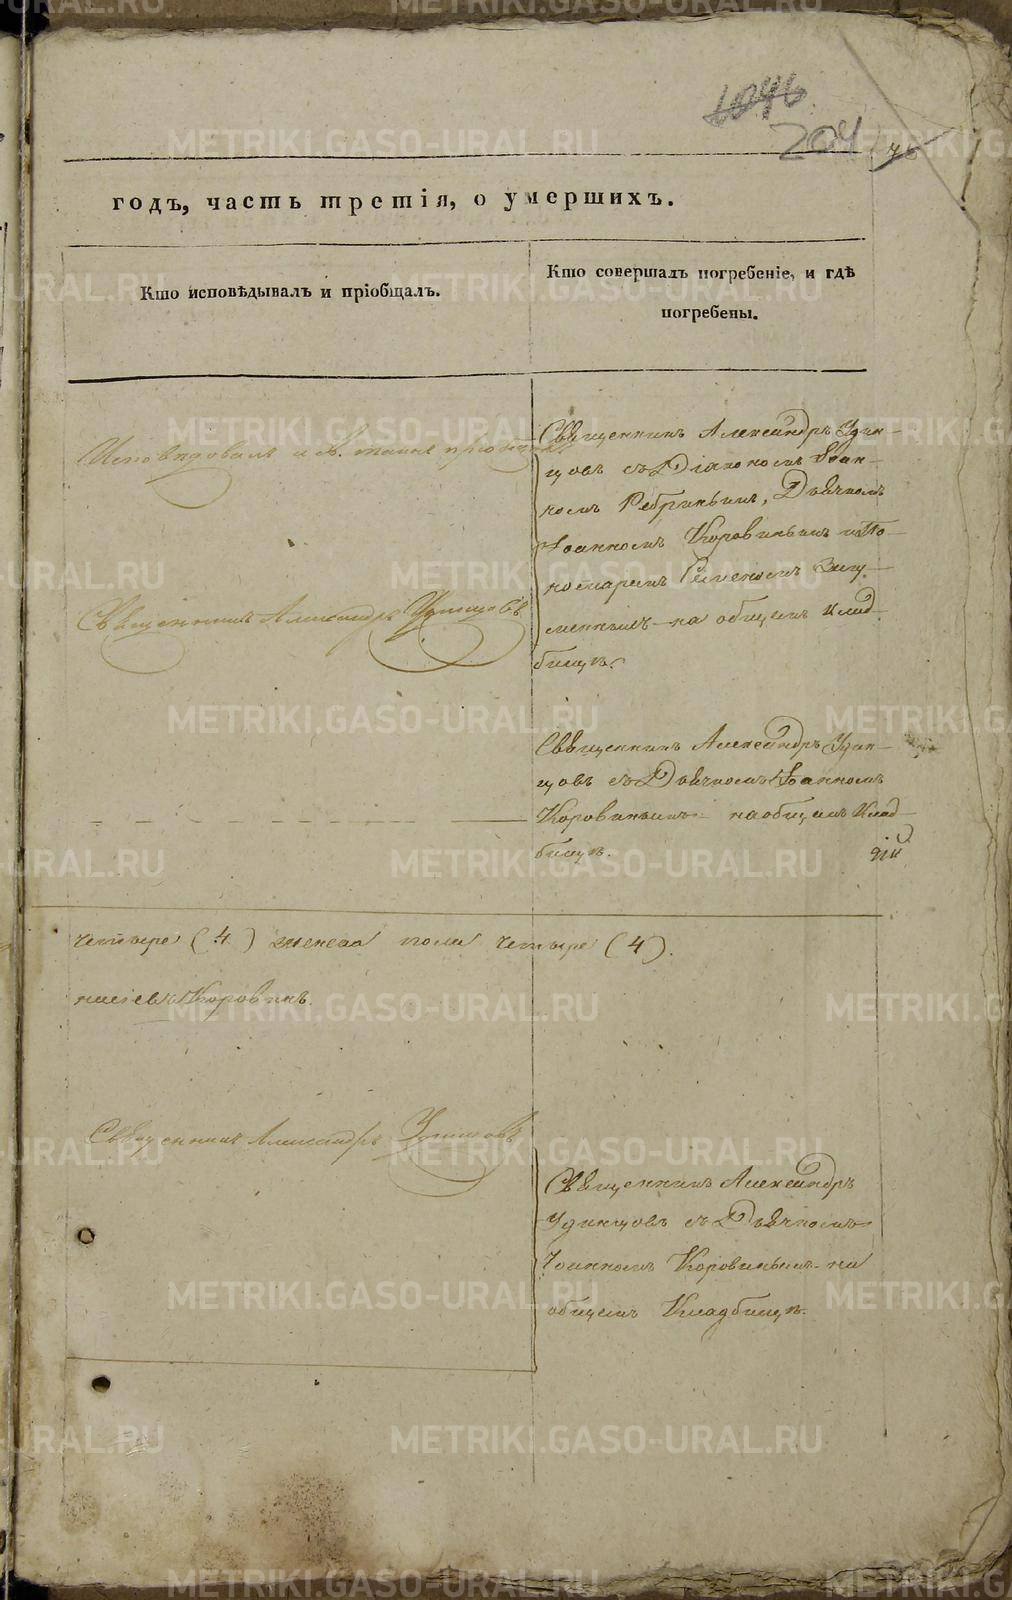 1046
204
76
годъ, часть третія, о умершихъ.
Кто исповѣдывалъ и пріобщалъ.
Кто совершалъ погребеніе, и гдѣ
погребены.
Исповѣдовалъ и Св. таинъ пріобщалъ
Священникъ Александръ Удинцовъ
Священникъ Александръ Удин-
цовъ съ Діакономъ Іоан-
номъ Ребринымъ, Дьячкомъ
Іоанномъ Коровинымъ и По-
номаремъ Семеномъ
на общемъ клад-
бищѣ.
Священникъ Александръ Удин-
цовъ съ Дьячкомъ Іоанномъ
Коровинымъ на общемъ клад-
бищѣ.
четыре (4) женска пола четыре (4).
Коровинъ.
Священникъ Александръ Удинцовъ
Священникъ Александръ
Удинцовъ съ Дьячкомъ
Іоанномъ Коровинымъ на
общемъ Кладбищѣ.
METRIKI.GASO-URAL.RU